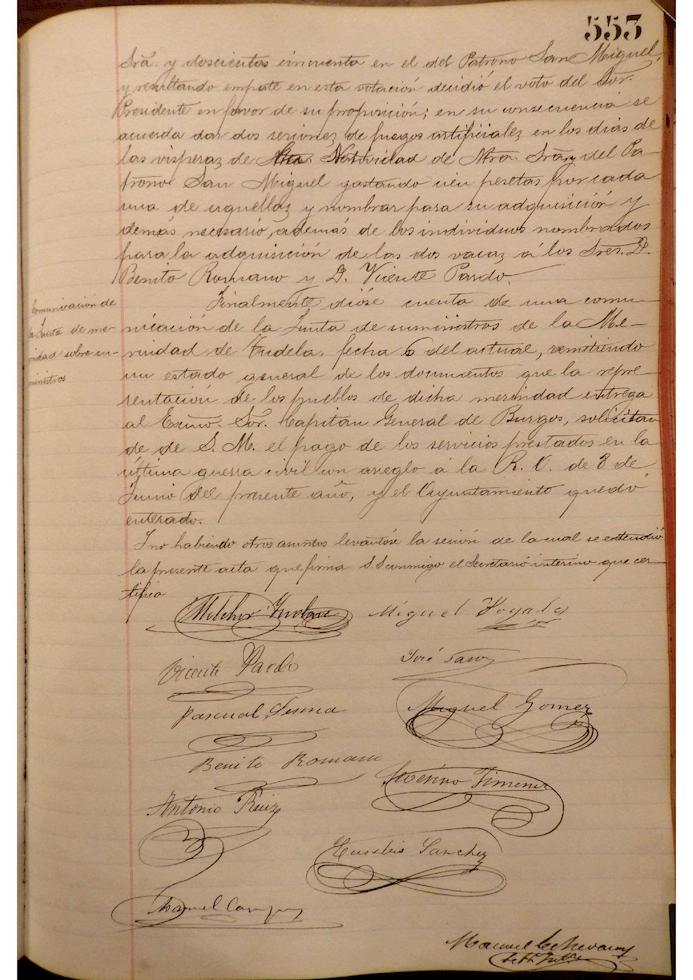 553
Srã. y doscientas cincuenta en el del Patrono San Miguel,
y resultando empate en esta votación decidió el voto del Sor.
Presidente en favor de su proposición; en su consecuencia se
acuerda dar dos sesiones de fuegos artificiales en los dias de
las visperas de Ntra. Natividad de Ntra. Srã. y del Pa-
trono San Miguel gastando cien pesetas por cada
una de aquellas y nombrar para su adquisición y
demás necesario, además de los individuos nombrados
para la adquisición de las dos vacas á los Sres. D.
Benito Romano y D. Vicente Pardo.
Comunicación de
la Junta de me-
rindad sobre su-
ministros
Finalmente, dióse cuenta de una comu-
nicación de la Junta de suministros de la Me-
rindad de Tudela, fecha 6 del actual, remitiendo
un estado general de los documentos que la repre-
sentación de los pueblos de dicha merindad entrega
al Excmo. Sor. Capitan General de Burgos, solicitan-
do de S. M. el pago de los servicios prestados en la
última guerra civil con areglo á la R. O. de 8 de
Junio del presente año, y el Ayuntamiento quedó
enterado.
Y no habiendo otros asuntos levantóse la sesión de la cual se extendió
la presente acta que firma S. S. conmigo el Secretario interino que cer-
tifica
Melchor
Miguel
Vicente Pardo
José
Pascual
Miguel Gomez
Benito Romano
Severino Jimenez
Antonio Ruiz
Eusebio Sanchez
Manuel
Manuel Echevarria